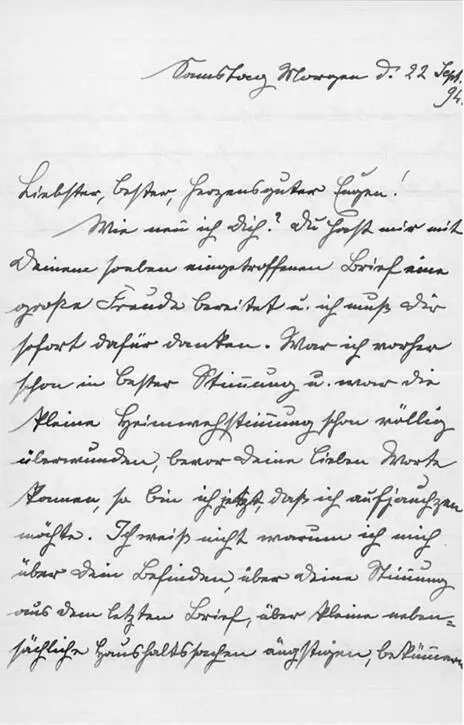 Samstag Morgen d. 22 Sept.
94.
Liebster, bester, herzensguter Eugen!
Wie nenn ich Dich? Du hast mir mit
Deinem soeben eingetroffenen Brief eine
große Freude bereitet u. ich muß Dir
sofort dafür danken. War ich vorher
schon in bester Stimmung u. war die
kleine Heimwehstimmung schon völlig
überwunden, bevor Deine lieben Worte
kamen, so bin ich jetzt, daß ich aufjauchzen
möchte. Ich weiß nicht warum ich mich
über Dein Befinden, über Deine Stimmung
aus dem letzten Brief, über kleine neben-
sächliche Haushaltssachen ängstigen, bekümmern